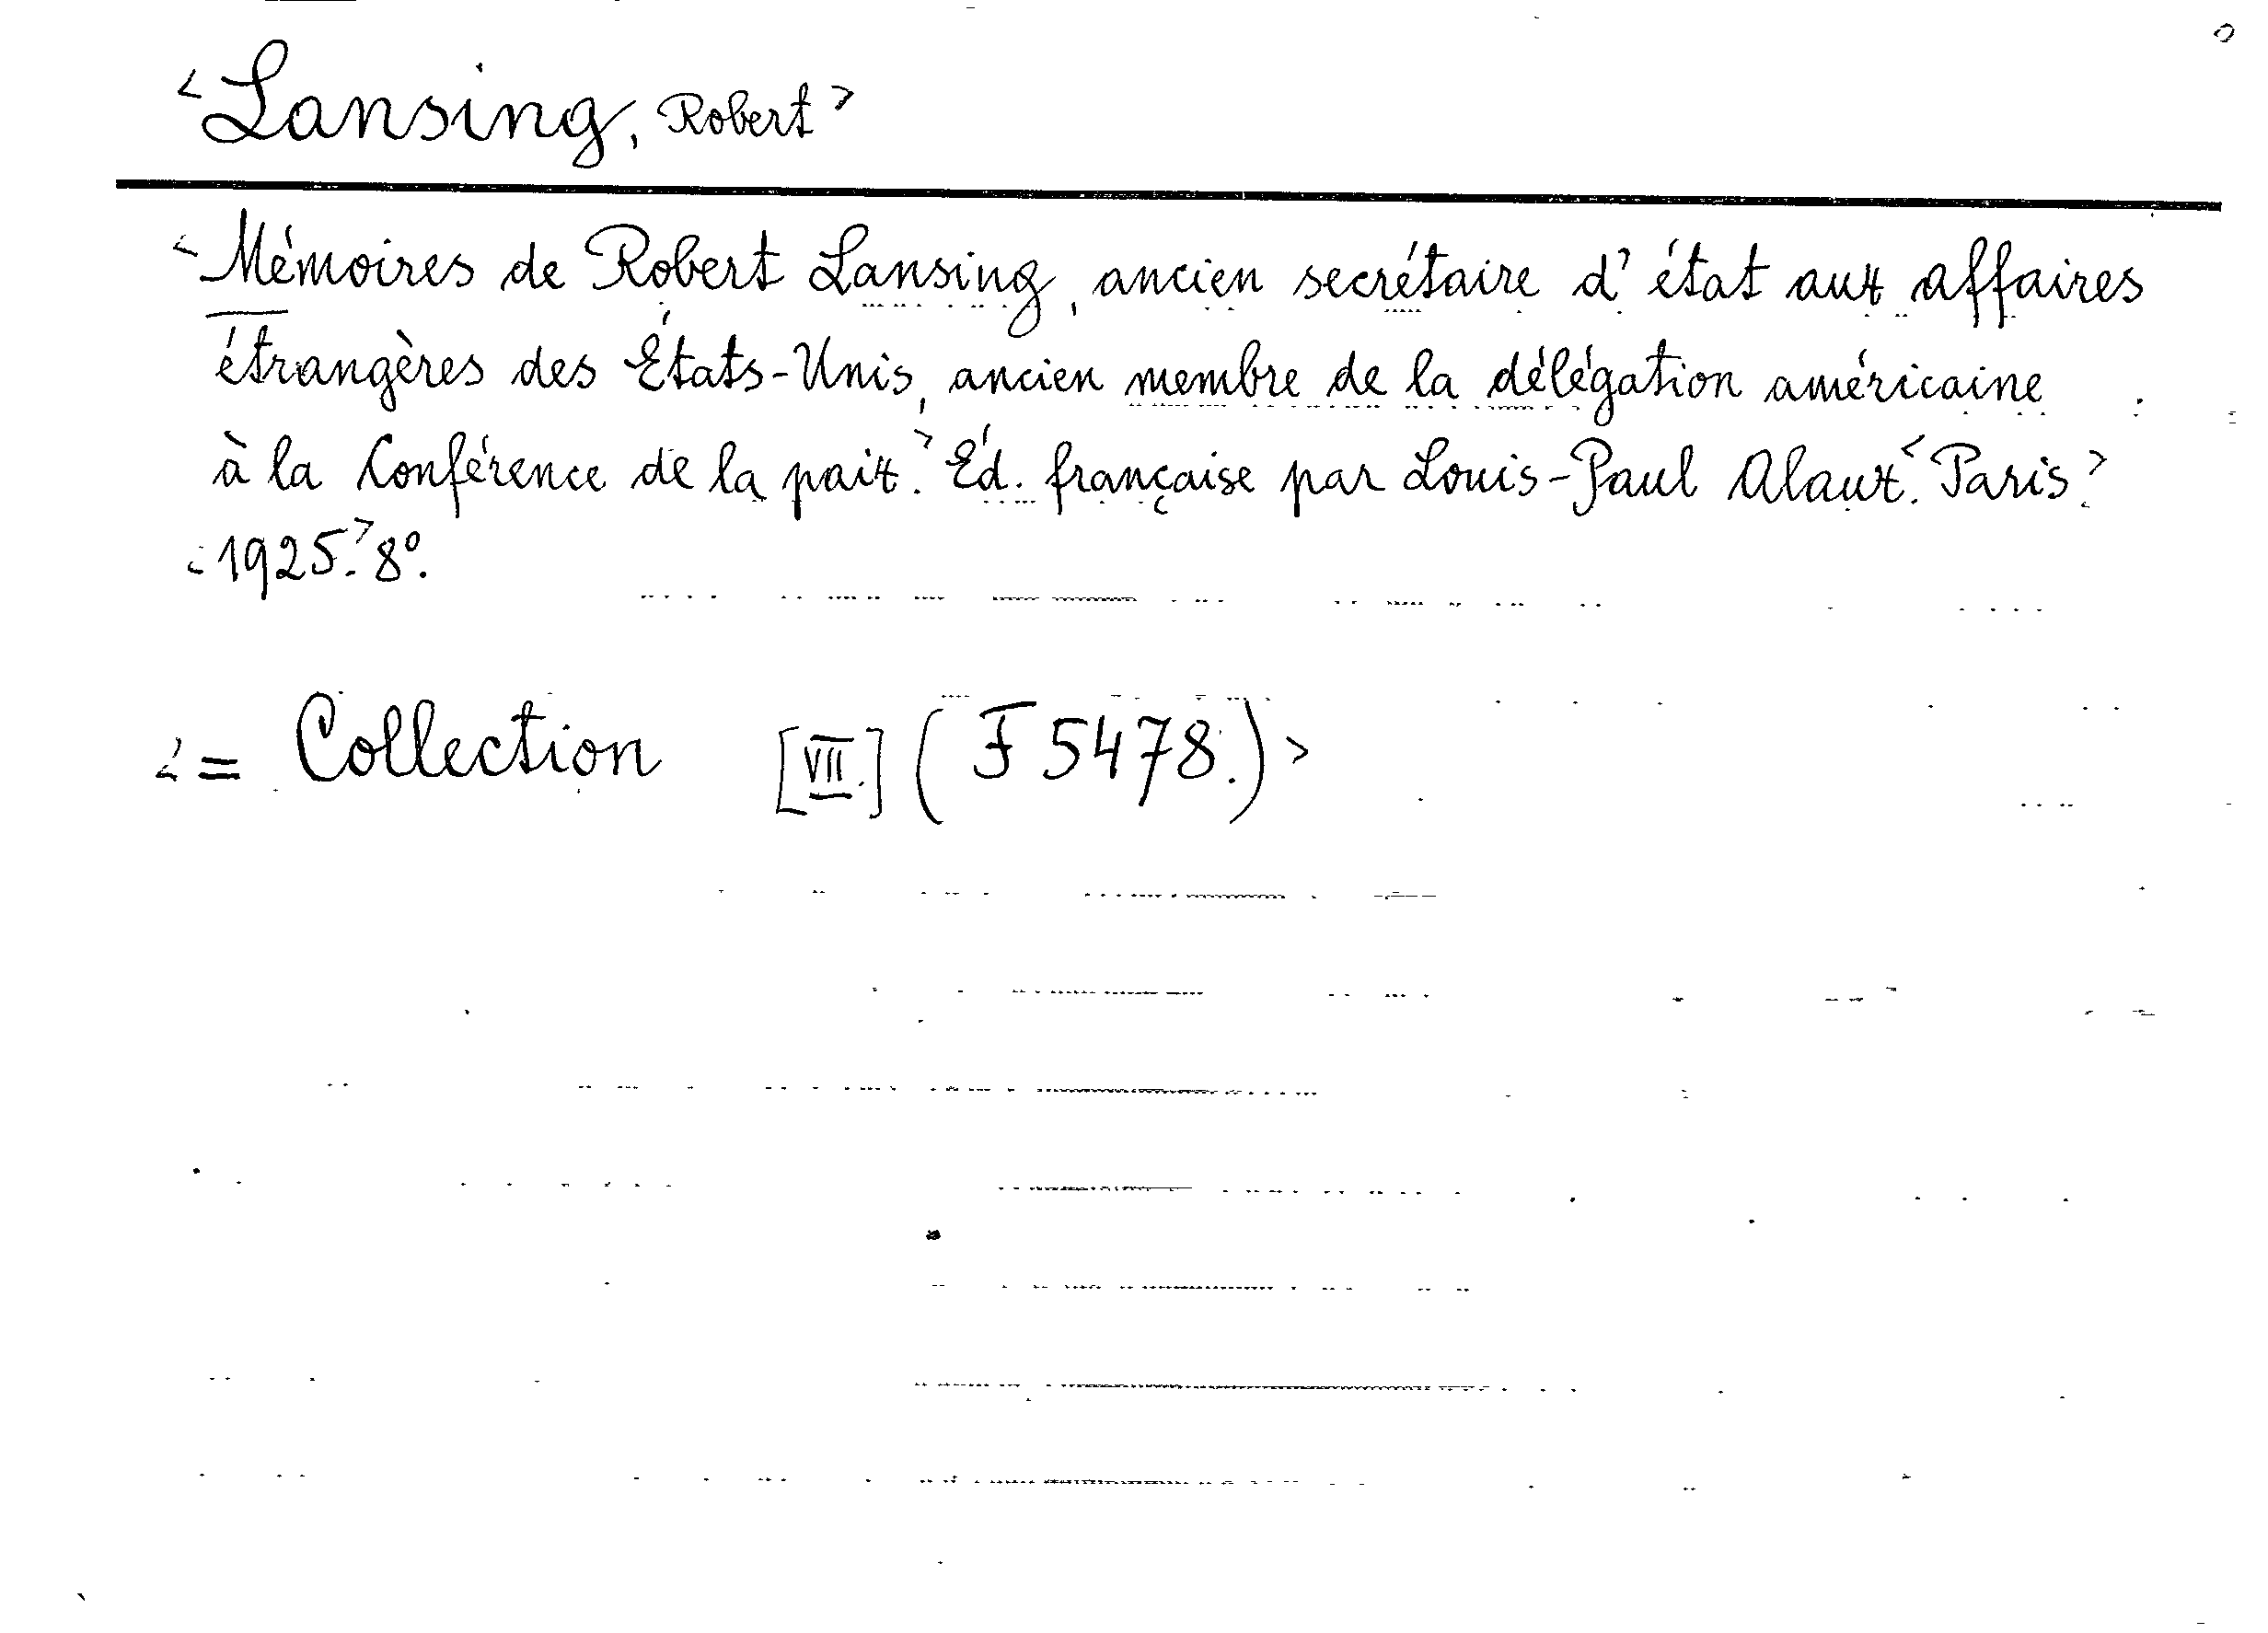 <Lansing, Robert>
<Mémoires de Robert Lansing, ancien secrétaire d'état aux affaires
étrangères des États-Unis, ancien membre de la délégation américaine
à la Conférence de la paix.> Éd. française par Louis-Paul Alaux. <Paris.>
<1925.> 8º.
<= Collection [VII.] (F 5478.)>